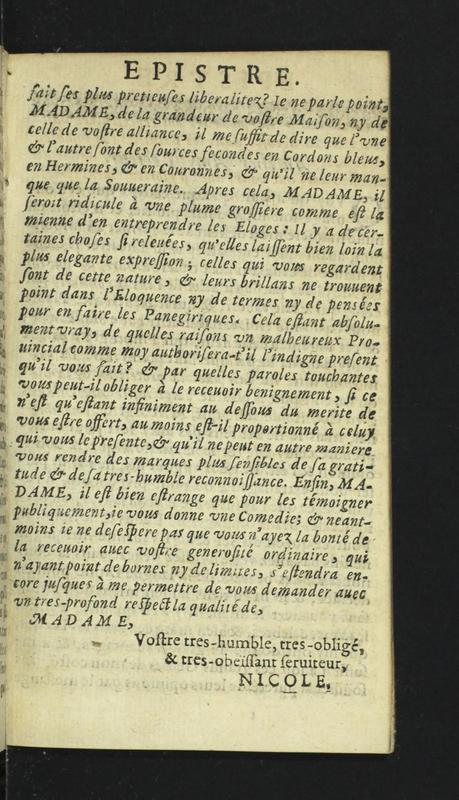 EPISTRE.
fait ses plus pretieuses liberalitez? Ie ne parle point,
MADAME, de la grandeur de vostre Maison, ny de
celle de vostre alliance, il me suffit de dire que l'vne
& l'autre sont des sources fecondes en Cordons bleus,
en Hermines, & en Couronnes, & qu'il ne leur man-
que que la Souueraine. Apres cela, MADAME, il
seroit ridicule à vne plume grossiere comme est la
mienne d'en entreprendre les Eloges: Il y a de cer-
taines choses si releuées, qu'elles laissent bien loin la
plus elegante expression; celles qui vous regardent
sont de cette nature, & leurs brillans ne trouuent
point dans l'Eloquence ny de termes ny de pensées
pour en faire les Panegiriques. Cela estant absolu-
ment vray, de quelles raisons vn malheureux Pro-
uincial comme moy authorisera-t'il l'indigne present
qu'il vous fait? & par quelles paroles touchantes
vous peut-il obliger à le receuoir benignement, si ce
n'est qu'estant infiniment au dessous du merite de
vous estre offert, au moins est-il proportionné à celuy
qui vous le presente, & qu'il ne peut en autre maniere
vous rendre des marques plus sensibles de sa grati-
tude & de sa tres-humble reconnoissance. Enfin, MA-
DAME, il est bien estrange que pour les témoigner
publiquement, ie vous donne vne Comedie; & neant-
moins ie ne desespere pas que vous n'ayez la bonté de
la receuoir auec vostre generosité ordinaire, qui
n'ayant point de bornes ny de limites, s'estendra en-
core jusques à me permettre de vous demander auec
vn tres-profond respect la qualité de,
MADAME,
Vostre tres-humble, tres-obligé,
& tres-obeissant seruiteur,
NICOLE,